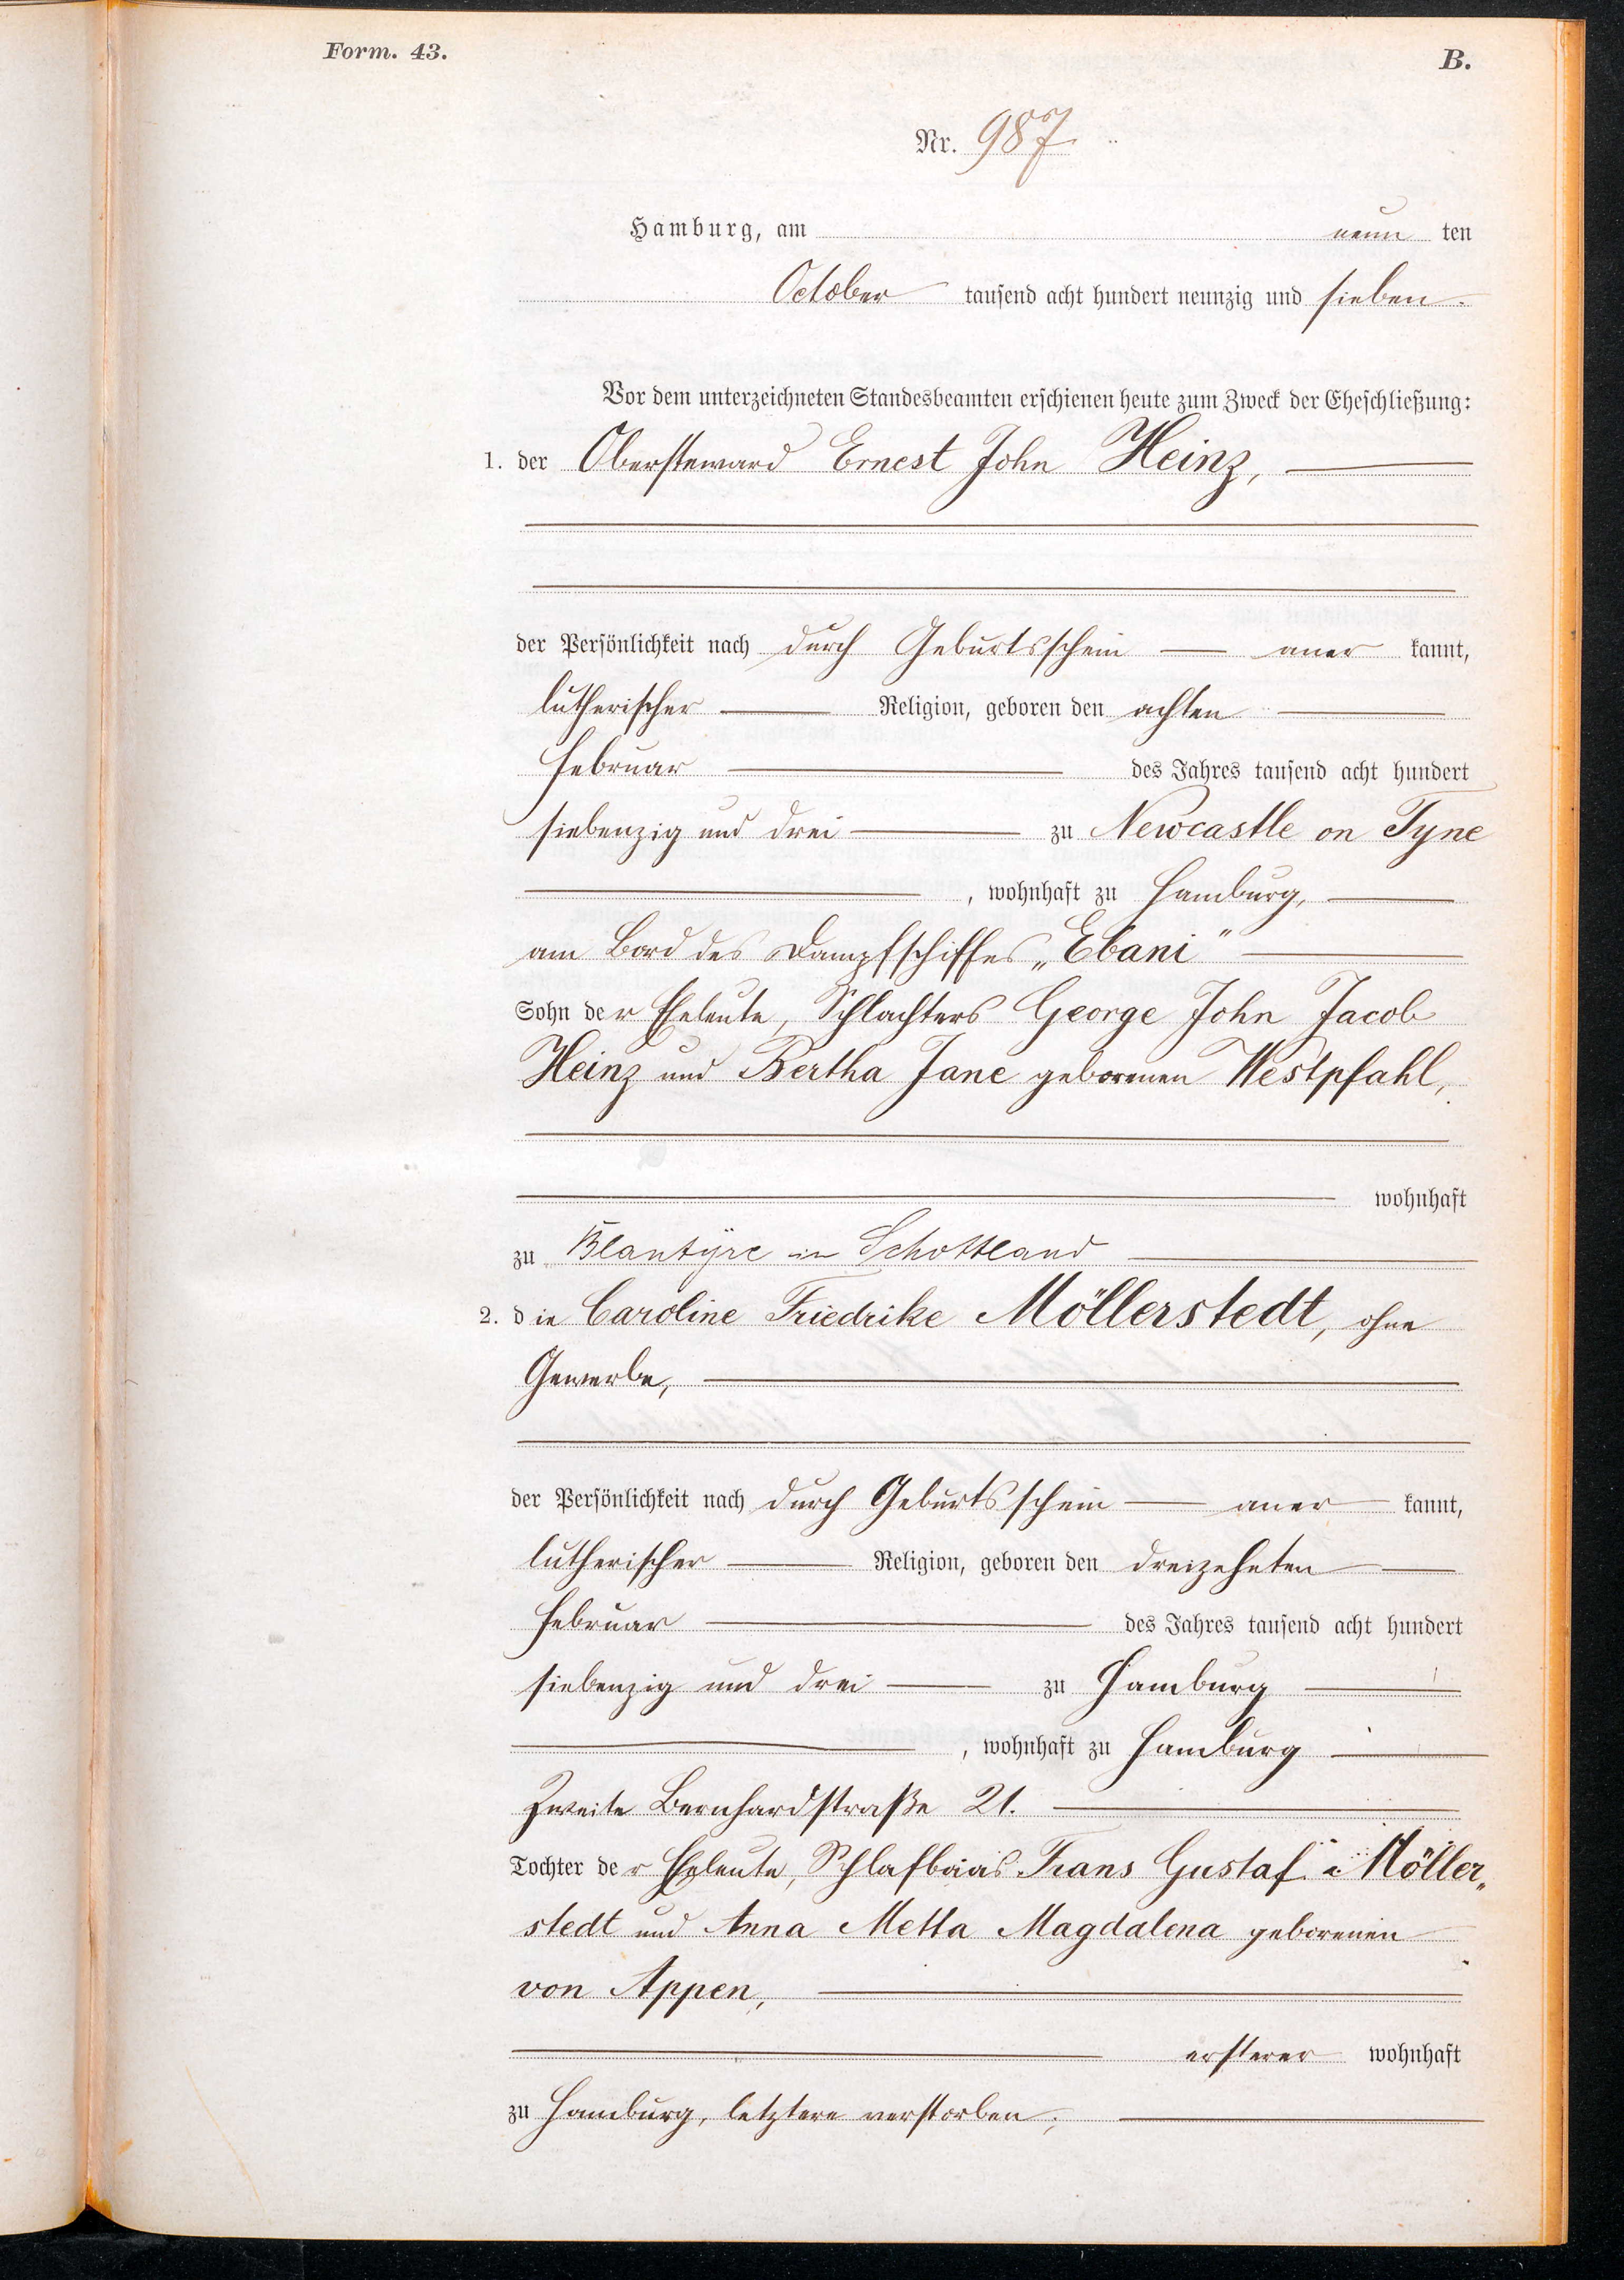 Form. 43.
B.
Nr. 987
Hamburg, am neun ten
October tausend acht hundert neunzig und sieben.
Vor dem unterzeichneten Standesbeamten erschienen heute zum Zweck der Eheschließung:
1. der Obersteward Ernest John Heinz,
der Persönlichkeit nach durch Geburtsschein aner kannt,
lutherischer Religion, geboren den achten
Februar des Jahres tausend acht hundert
siebenzig und drei zu Newcastle on Tyne
, wohnhaft zu Hamburg,
am Bord des Dampfschiffes „Ebani"
Sohn der Eheleute, Schlachters George John Jacob
Heinz und Bertha Jane geborenen Westpfahl,
wohnhaft
zu Blantyre in Schottland
2. die Caroline Friedrike Möllerstedt, ohne
Gewerbe,
der Persönlichkeit nach durch Geburtsschein aner kannt,
lutherischer Religion, geboren den dreizehnten
Februar des Jahres tausend acht hundert
siebenzig und drei zu Hamburg
, wohnhaft zu Hamburg
Zweite Bernhardstraße 21.
Tochter der Eheleute, Schlafbaas Frans Gustaf Möller„
stedt und Anna Metta Magdalena geborenen
von Appen,
ersterer wohnhaft
zu Hamburg, letztere verstorben;